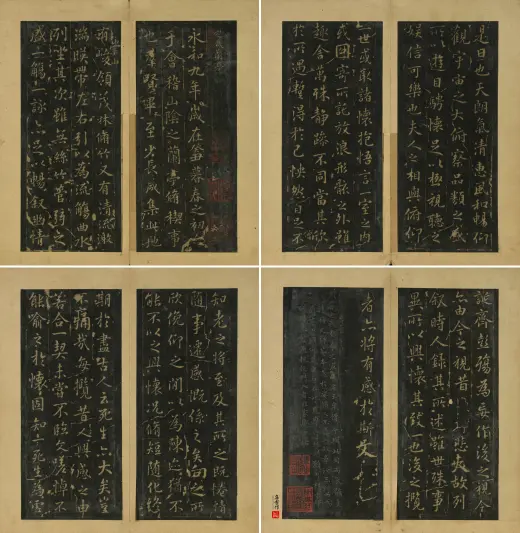 永和九年歲在癸丑暮春之初
于會稽山陰之蘭亭脩稧事
也羣賢畢至少長咸集此地
峻領茂林脩竹又有清流激
湍暎帶左右引以為流觴曲水
列坐其次雖無絲竹管弦之
盛一觴一詠亦足以暢敘幽情
是日也天朗氣清惠風和暢仰
觀宇宙之大俯察品類之盛
所以遊目騁懷足以極視聽之
娛信可樂也夫人之相與俯仰
一世或取諸懷抱悟言一室之內
或因寄所託放浪形骸之外雖
趣舍萬殊靜躁不同當其欣
於所遇蹔得於己怏然自足不
知老之將至及其所之既惓情
隨事遷感慨係之矣向之所
欣俛仰之閒以為陳迹猶不
能不以之興懷況脩短隨化終
期於盡古人云死生亦大矣豈
不痛哉每攬昔人興感之由
若合一契未嘗不臨文嗟悼不
能喻之於懷固知一死生為虛
誕齊彭殤為妄作後之視今
亦由今之視昔悲夫故列
敘時人錄其所述雖世殊事
異所以興懷其致一也後之攬
者亦將有感於斯文